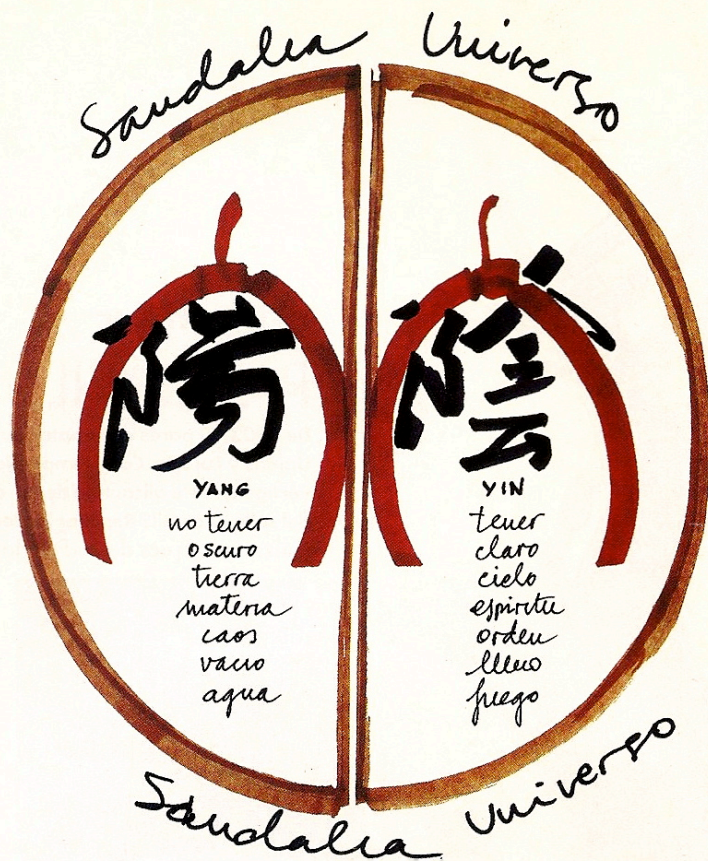 Sandalia Universo
陽 陰
YANG
no tener
oscuro
tierra
materia
caos
vacio
agua
YIN
tener
claro
cielo
espiritu
orden
lleno
fuego
Sandalia Universo